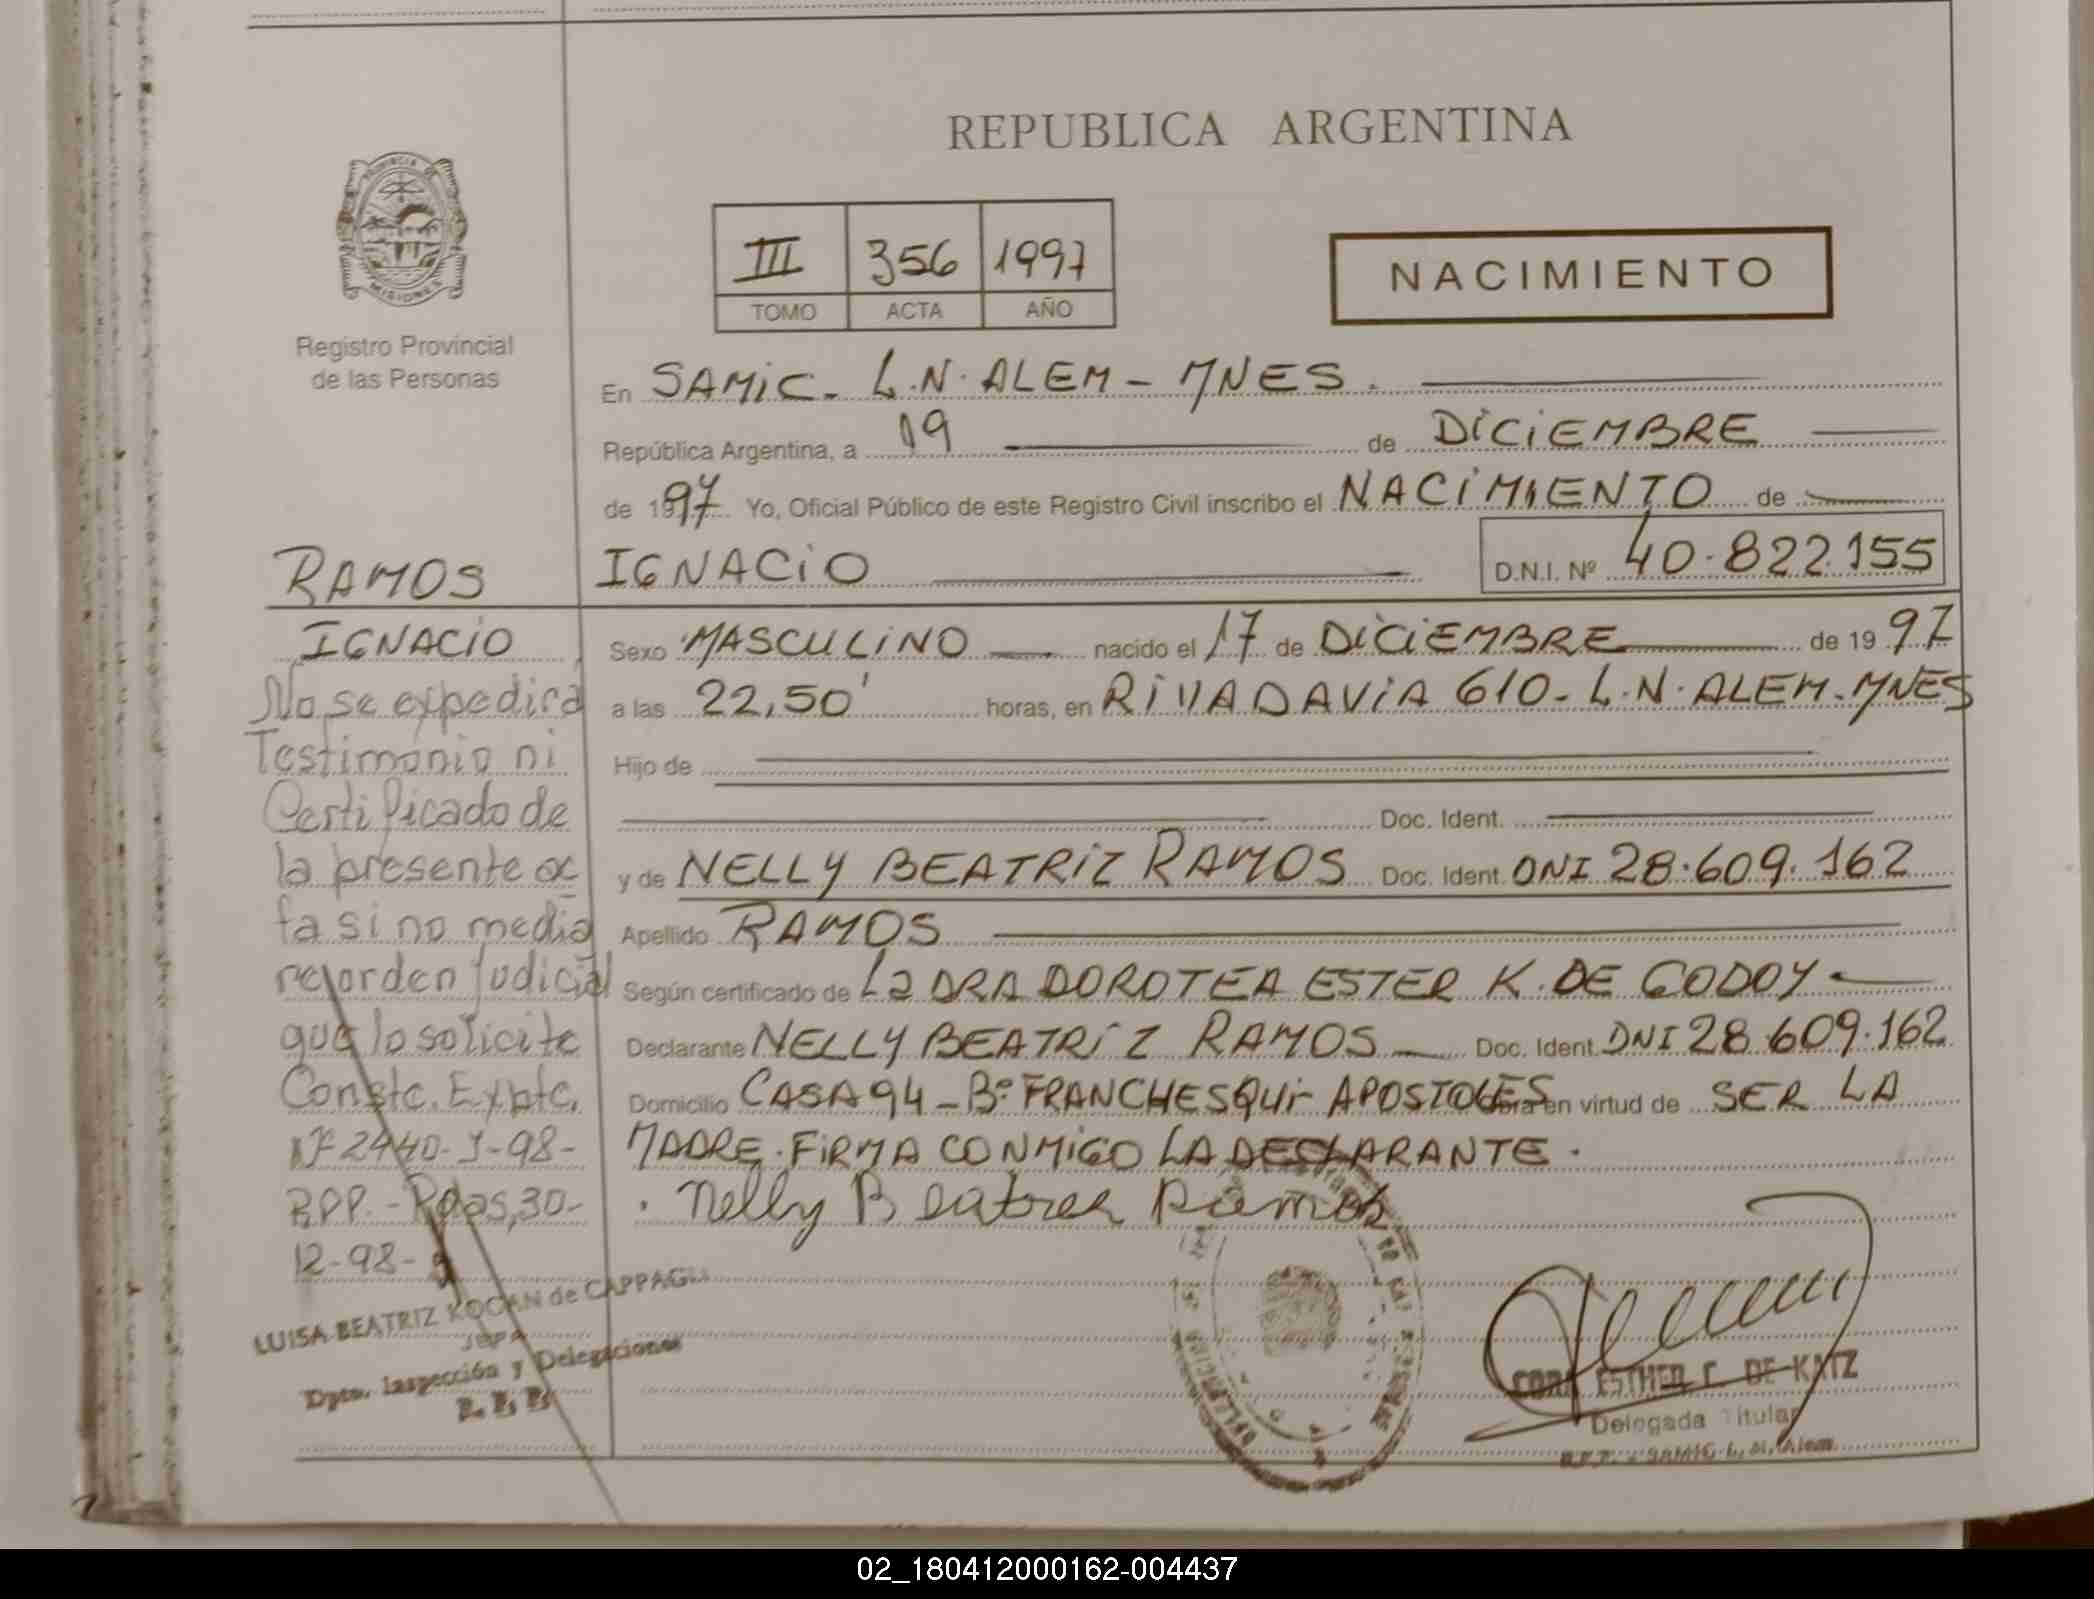 REPUBLICA ARGENTINA
PROVINCIA DE
MISIONES
Registro Provincial
de las Personas
III 356 1997
TOMO ACTA AÑO
NACIMIENTO
En SAMIC - L.N. ALEM - MNES.
República Argentina, a 19 de DICIEMBRE
de 1997 Yo, Oficial Público de este Registro Civil inscribo el NACIMIENTO de
IGNACIO D.N.I. Nº 40.822.155
RAMOS
IGNACIO
No se expedirá
Testimonio ni
Certificado de
la presente ac
ta si no media
re orden judicial
que lo solicite
Constc. Expte.
Nº 2440-J-98-
R.P.P. - Pdas, 30-
12-98-
LUISA BEATRIZ KOCAN de CAPPAGLI
JEFA
Dpto. Inspección y Delegaciones
R. P. P.
Sexo MASCULINO nacido el 17 de DICIEMBRE de 1997
a las 22,50' horas, en RIVADAVIA 610 - L.N. ALEM - MNES
Hijo de
Doc. Ident.
y de NELLY BEATRIZ RAMOS Doc. Ident. DNI 28.609.162
Apellido RAMOS
Según certificado de La DRA DOROTEA ESTER K. DE GODOY
Declarante NELLY BEATRIZ RAMOS Doc. Ident. DNI 28.609.162
Domicilio CASA 94 - Bº FRANCHESQUI - APOSTOLES obra en virtud de SER LA
MADRE. FIRMA CONMIGO LA DECLARANTE.
Nelly Beatrez Ramos
ESTHER C. DE KATZ
Delegada Titular
R.P.P. - SAMIC L. N. Alem
02_180412000162-004437